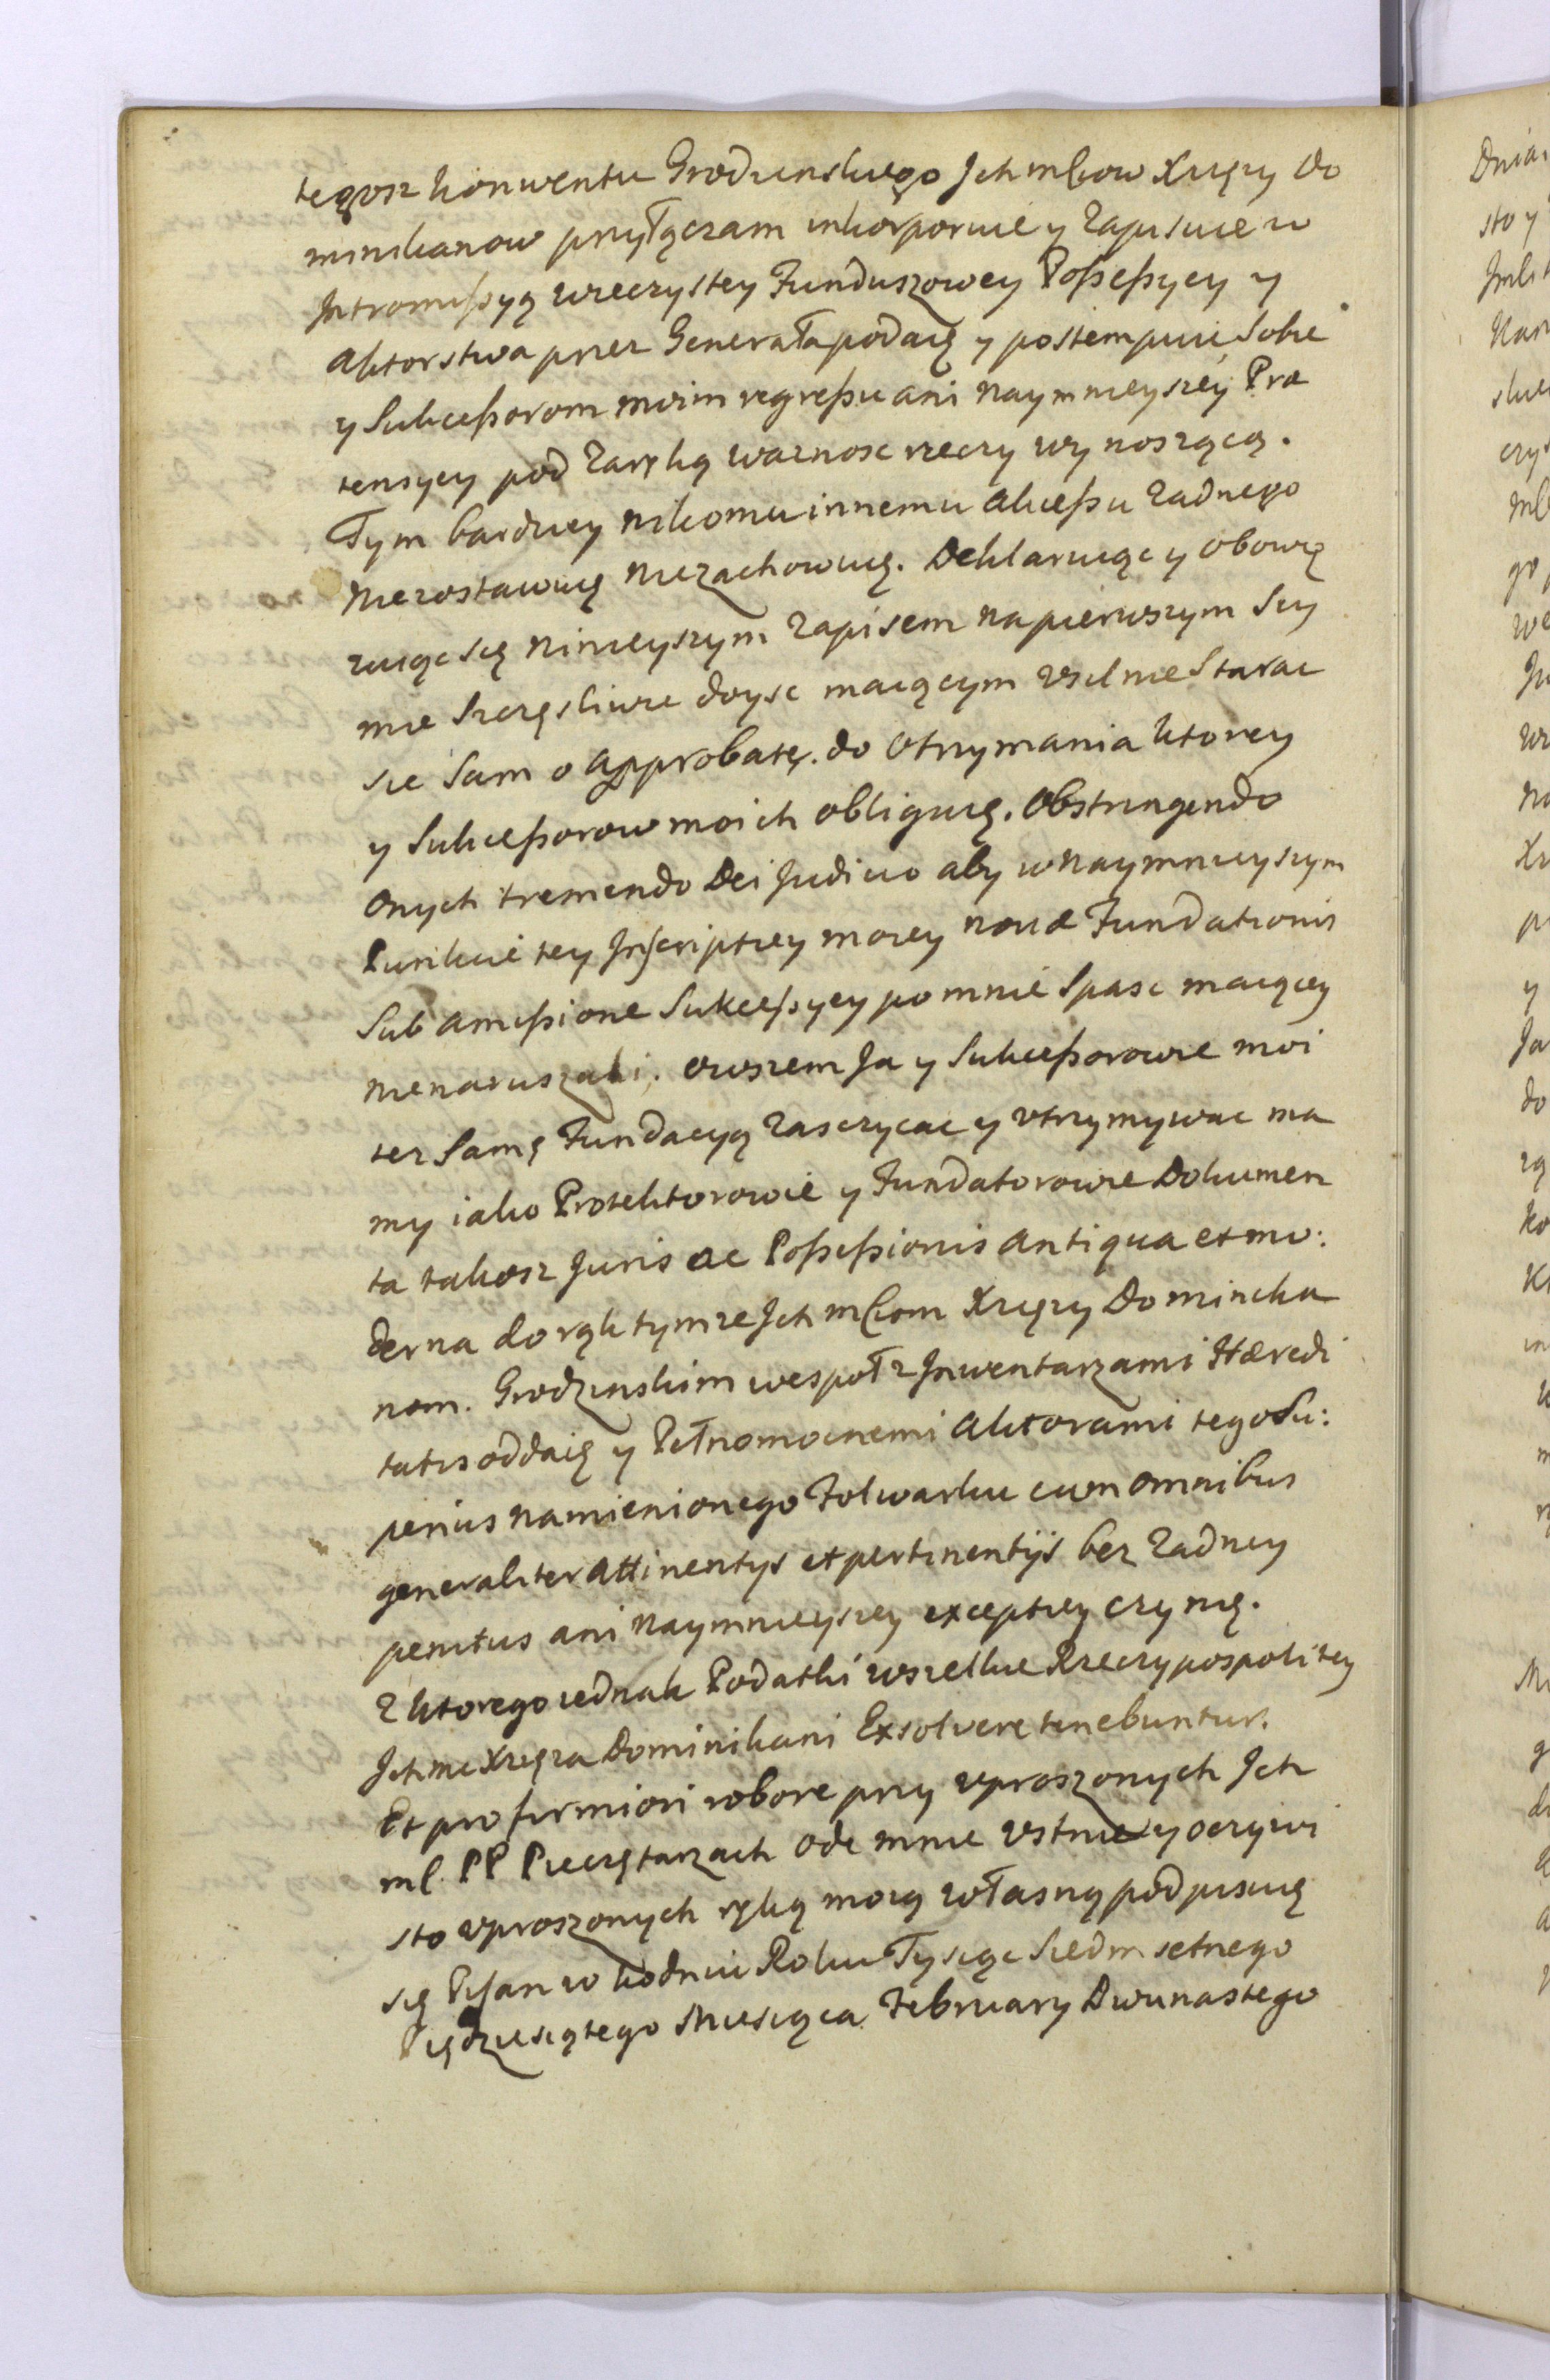 tegosz Konwentu Grodzenskiego Jch mściow Xięży Do
minikanow przyłączam inkorporuie y zapisuie w
Jntromißyą wieczystey Funduszowey Poßeßyey y
aktorstwa przez Generała podaię y postempuie Sobie
y Sukceßorom moim regreßu ani naymnieyszey Præ
tensyey pod Zaręką waznosc rzeczy wynoszącą.
Tym bardziey nikomu innemu akceßu zadnego
niezostawuię niezachowuię. Deklaruiąc y obowię
zuiąc się ninieyszym zapisem na pierwszym Sey
mie Szczęsliwie doysc maiącym vsilnie Starac
sie Sam o approbatę. do otrzymania ktorey
y Sukceßorow moich obliguię. Obstringendo
onych tremendo Dei Judicio aby w naymnieyszym
Punkcie tey Jnscriptiey moiey novæ Fundationis
Sub amißione Sukceßyey po mnie Spasc maiącey
nienaruszali. owszem Ja y Sukceßorowie moi
tez Samę Fundacyą zasczycac y vtrzymywac ma
my iako Protektorowie y Fundatorowie Dokumen
ta takosz Juris ac Poßeßionis antiqua et mo:
derna do rąk tymze Jch mściom Xięży Dominika
nom. Grodzenskim wespoł z Jnwentarzami Hæredi
tatis oddaię y Pełnomocnemi aktorami tego Su:
perius namienionego Folwarku cum omnibus
generaliter attinentys et pertinentijs bez zadney
penitus ani naymnieyszey exceptiey czynię.
Z ktorego iednak Podatki wszelkie Rzeczypospolitey
Jchmc Xięza Dominikani Exsolvere tenebuntur.
Et pro firmiori robore przy vproszonych Jch
mś. PP Pieczętarzach ode mnie vstnie y oczywi
sto vproszonych ręką moią własną podpisuię
się Pisan w Kodniu Roku Tysiąc Siedm setnego
Pięćdziesiątego Miesiąca February Dwunastego
Dnia
sto y